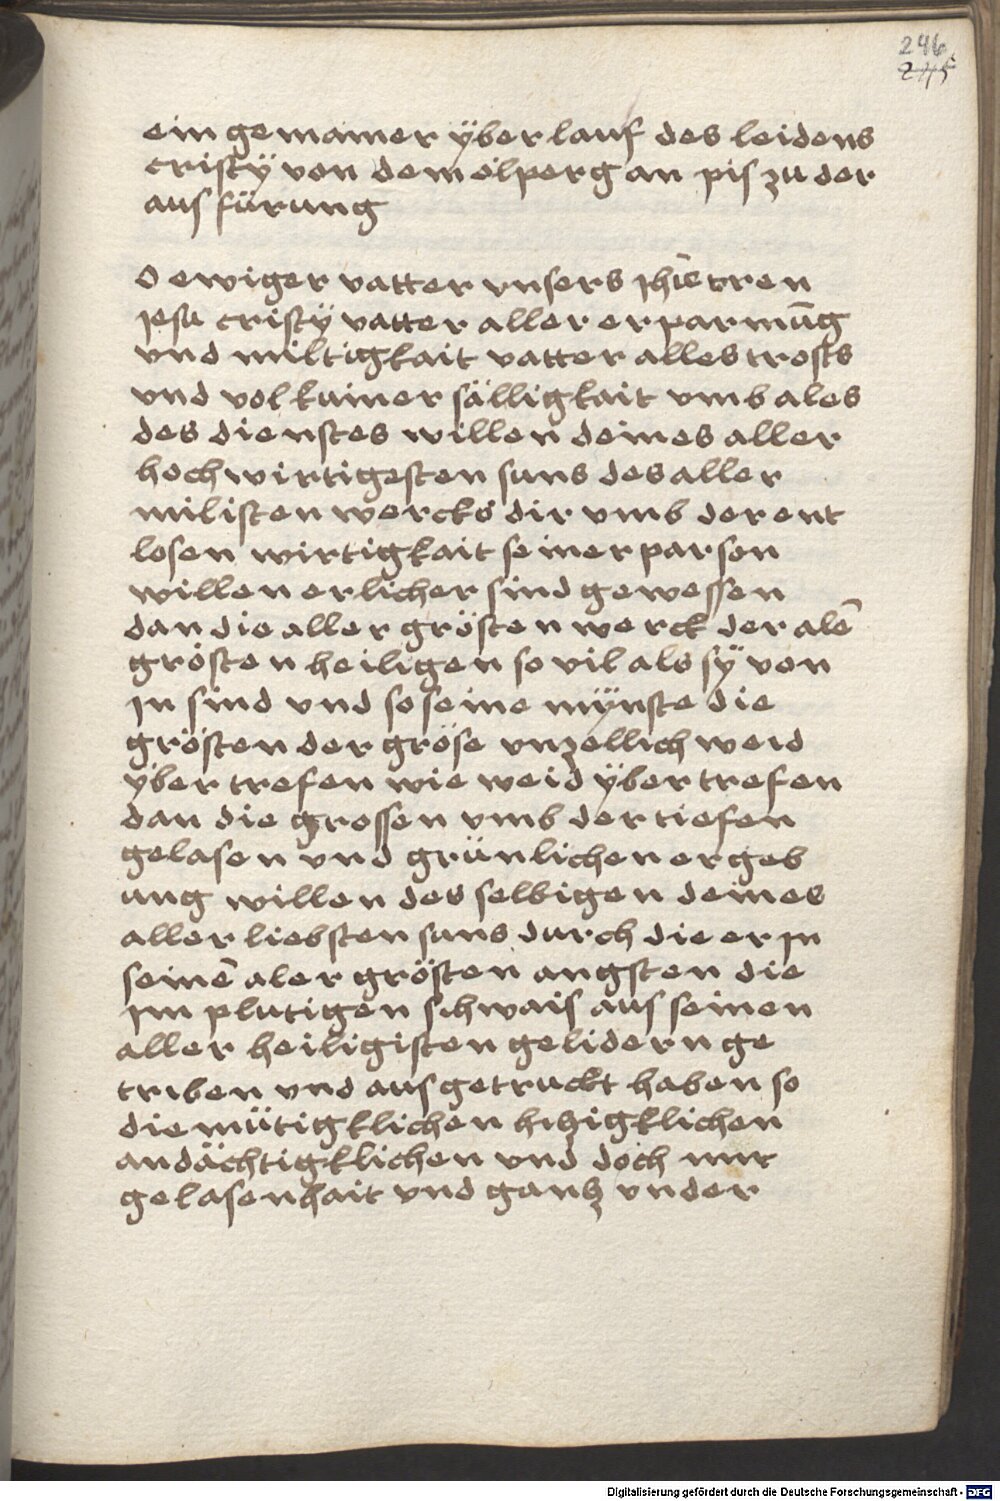 246
245
ein gemainer ÿberlauf des leidens
cristÿ von dem ölperg an pis zu der
aus fürung
O ewiger vatter unsers
jesu cristÿ vatter aller erparmūg
und miltigkait vatter alles trosts
und volkumer sälligkait umb ales
des dienstes willen deines aller
hochwirtigesten suns des aller
milisten wercks dir umb der ent
losen wirtigkait seiner parson
willen erlicher sind gewessen
dan die aller grösten werck der alē
grösten heiligen so vil als sÿ von
in sind und so seine mÿnste die
grösten der gröse unzellich weid
ÿber trefen wie weid ÿber trefen
dan die grossen umb der tiefen
gelasen und grünlichen ergeb
ung willen des selbigen deines
aller liebsten suns durch die er in
seinē aler grösten angsten die
im plutigen schwais aus seinen
aller heiligisten gelidern ge
triben und ausgetruckt haben so
diemütigklichen hitzigklichen
andächtigklichen und doch mit
gelasenhait und gantz under
Digitalisierung gefördert durch die Deutsche Forschungsgemeinschaft - DFG